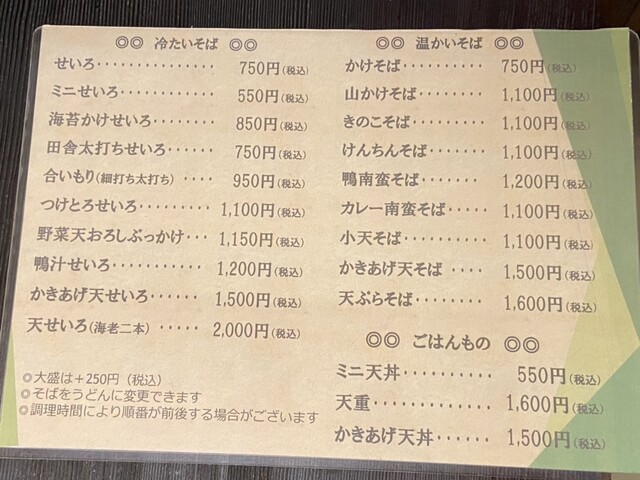 ◎◎ 冷たいそば ◎◎
せいろ・・・・・・・・・・・・・・・ 750円(税込)
ミニせいろ・・・・・・・・・・・ 550円(税込)
海苔かけせいろ・・・・・・・ 850円(税込)
田舎太打ちせいろ・・・・・ 750円(税込)
合いもり(細打ち太打ち)・・・・ 950円(税込)
つけとろせいろ・・・・・・・・・ 1,100円(税込)
野菜天おろしぶっかけ・・・ 1,150円(税込)
鴨汁せいろ・・・・・・・・・・・・ 1,200円(税込)
かきあげ天せいろ・・・・・・ 1,500円(税込)
天せいろ(海老二本)・・・・・ 2,000円(税込)
◎大盛は+250円(税込)
◎そばをうどんに変更できます
◎調理時間により順番が前後する場合がございます
◎◎ 温かいそば ◎◎
かけそば・・・・・・・・・ 750円(税込)
山かけそば・・・・・・・・ 1,100円(税込)
きのこそば・・・・・・・・ 1,100円(税込)
けんちんそば・・・・・・ 1,100円(税込)
鴨南蛮そば・・・・・・・・ 1,200円(税込)
カレー南蛮そば・・・・・ 1,100円(税込)
小天そば・・・・・・・・・ 1,100円(税込)
かきあげ天そば・・・・ 1,500円(税込)
天ぷらそば・・・・・・・・ 1,600円(税込)
◎◎ ごはんもの ◎◎
ミニ天丼・・・・・・・・・・ 550円(税込)
天重・・・・・・・・・・・・ 1,600円(税込)
かきあげ天丼・・・・・・ 1,500円(税込)